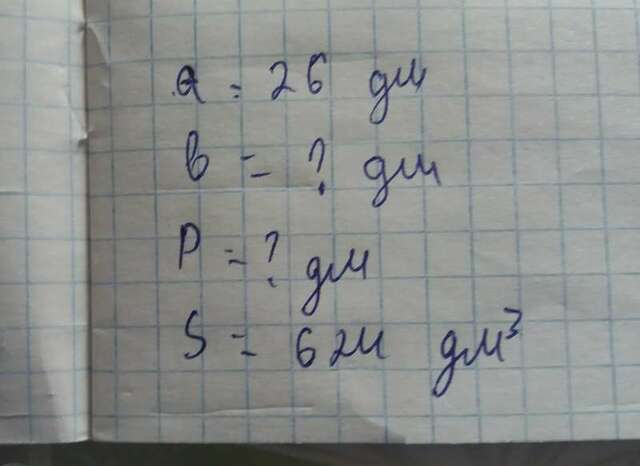 a = 26 дм
b = ? дм
P = ? дм
S = 624 дм³